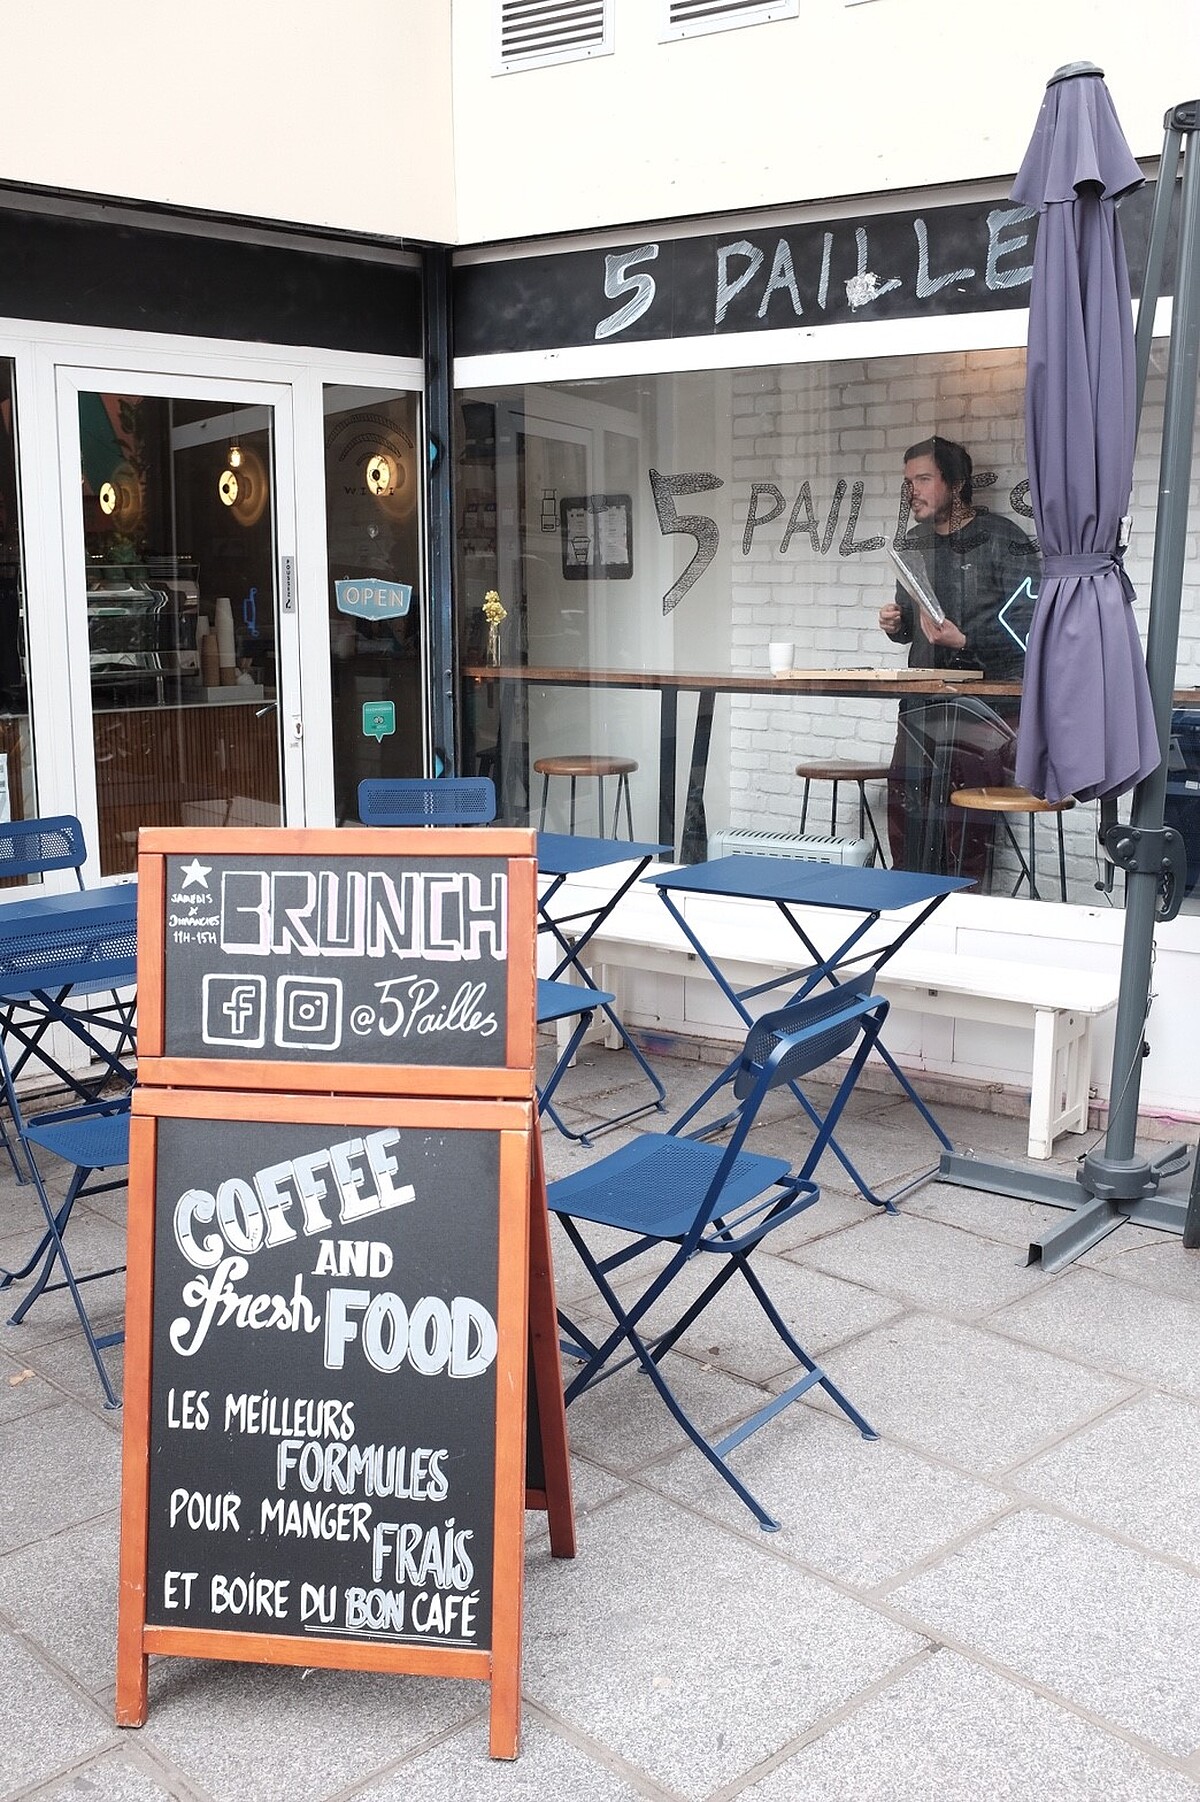 5 PAILLE
5 PAILLES
WIFI
OPEN
POUSSEZ
BRUNCH
SAMEDIS
&
DIMANCHES
11H-15H
@5Pailles
COFFEE
AND
fresh FOOD
LES MEILLEURS
FORMULES
POUR MANGER
FRAIS
ET BOIRE DU BON CAFÉ